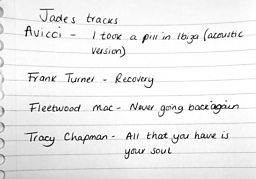 Jades tracks
Avicci - I took a pill in Ibiza (acoustic
version)
Frank Turner - Recovery
Fleetwood mac - Never going back again
Tracy Chapman - All that you have is
your soul